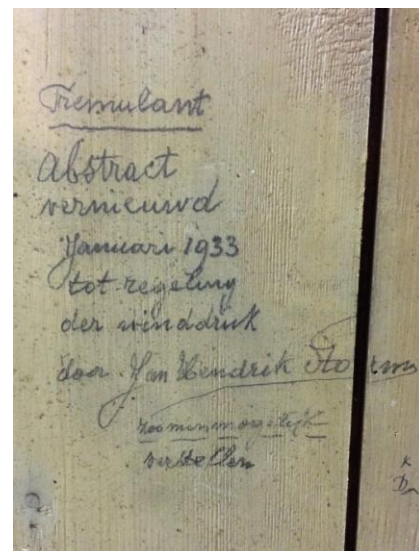 Tremulant
Abstract
vernieuwd
Januari 1933
tot regeling
der winddruk
door Jan Hendrik
zoo min mogelijk
verstellen
K
D